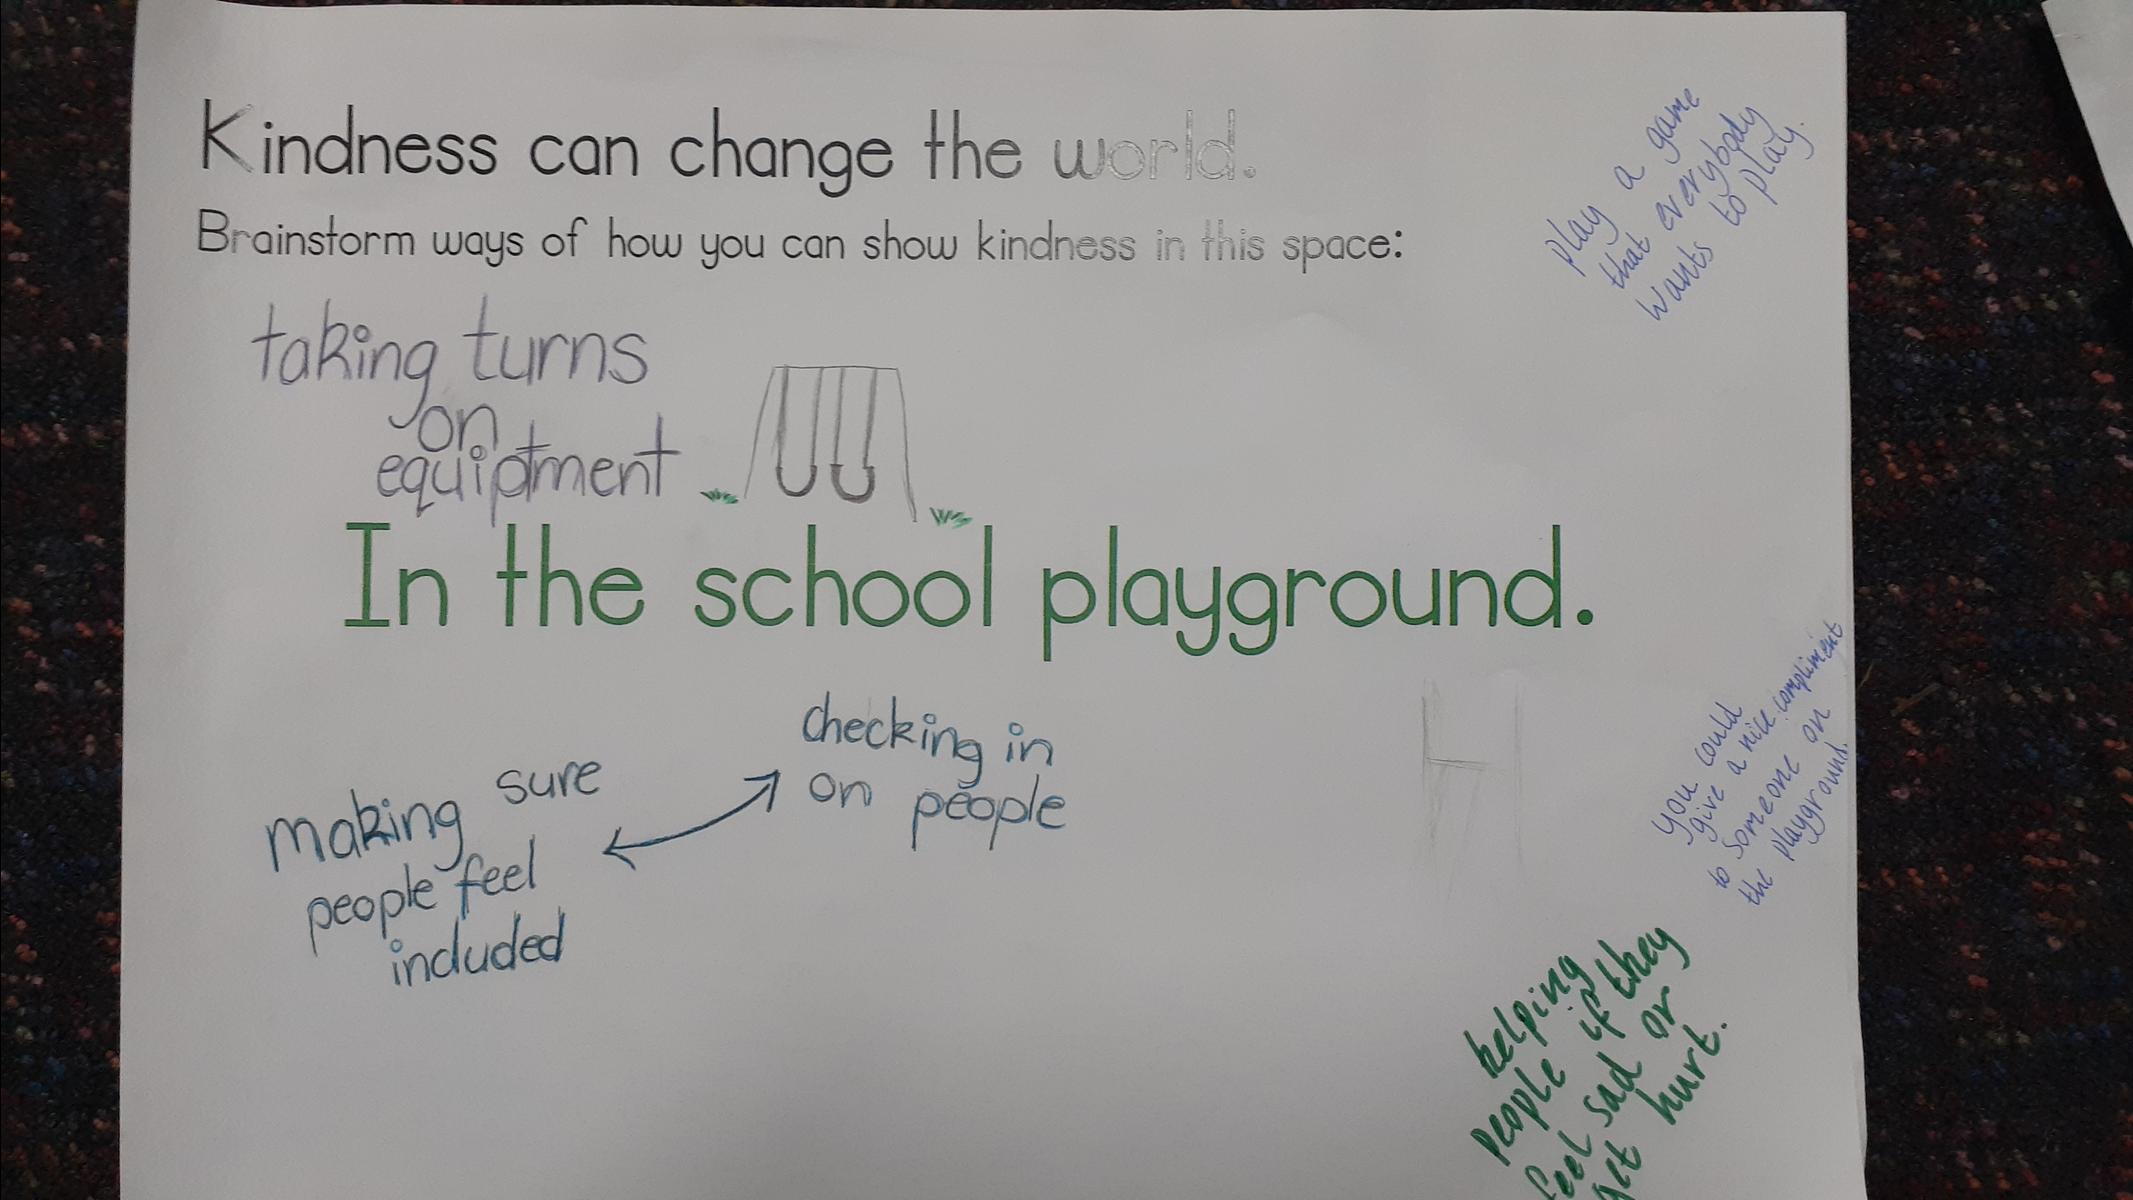 Kindness can change the world.
Brainstorm ways of how you can show kindness in this space:
play a game
that everybody
wants to play.
taking turns
on
equiptment
In the school playground.
checking in
on people
making sure
people feel
included
you could
give a nice compliment
to someone on
the playground.
helping
people if they
feel sad or
get hurt.